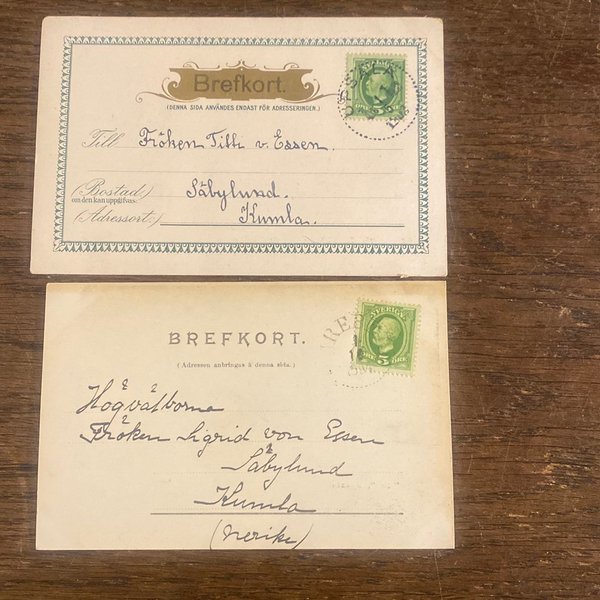 Brefkort.
(DENNA SIDA ANVÄNDES ENDAST FÖR ADRESSERINGEN.)
SVERIGE
5
Till Fröken Till v. Essen.
(Bostad) Säbylund.
om den kan uppgifvas:
(Adressort:) Kumla.
BREFKORT.
(Adressen anbringas å denna sida.)
SVERIGE
ÖRE 5 ÖRE
Högvälborna
Fröken Sigrid von Essen
Säbylund
Kumla
(Nerike)